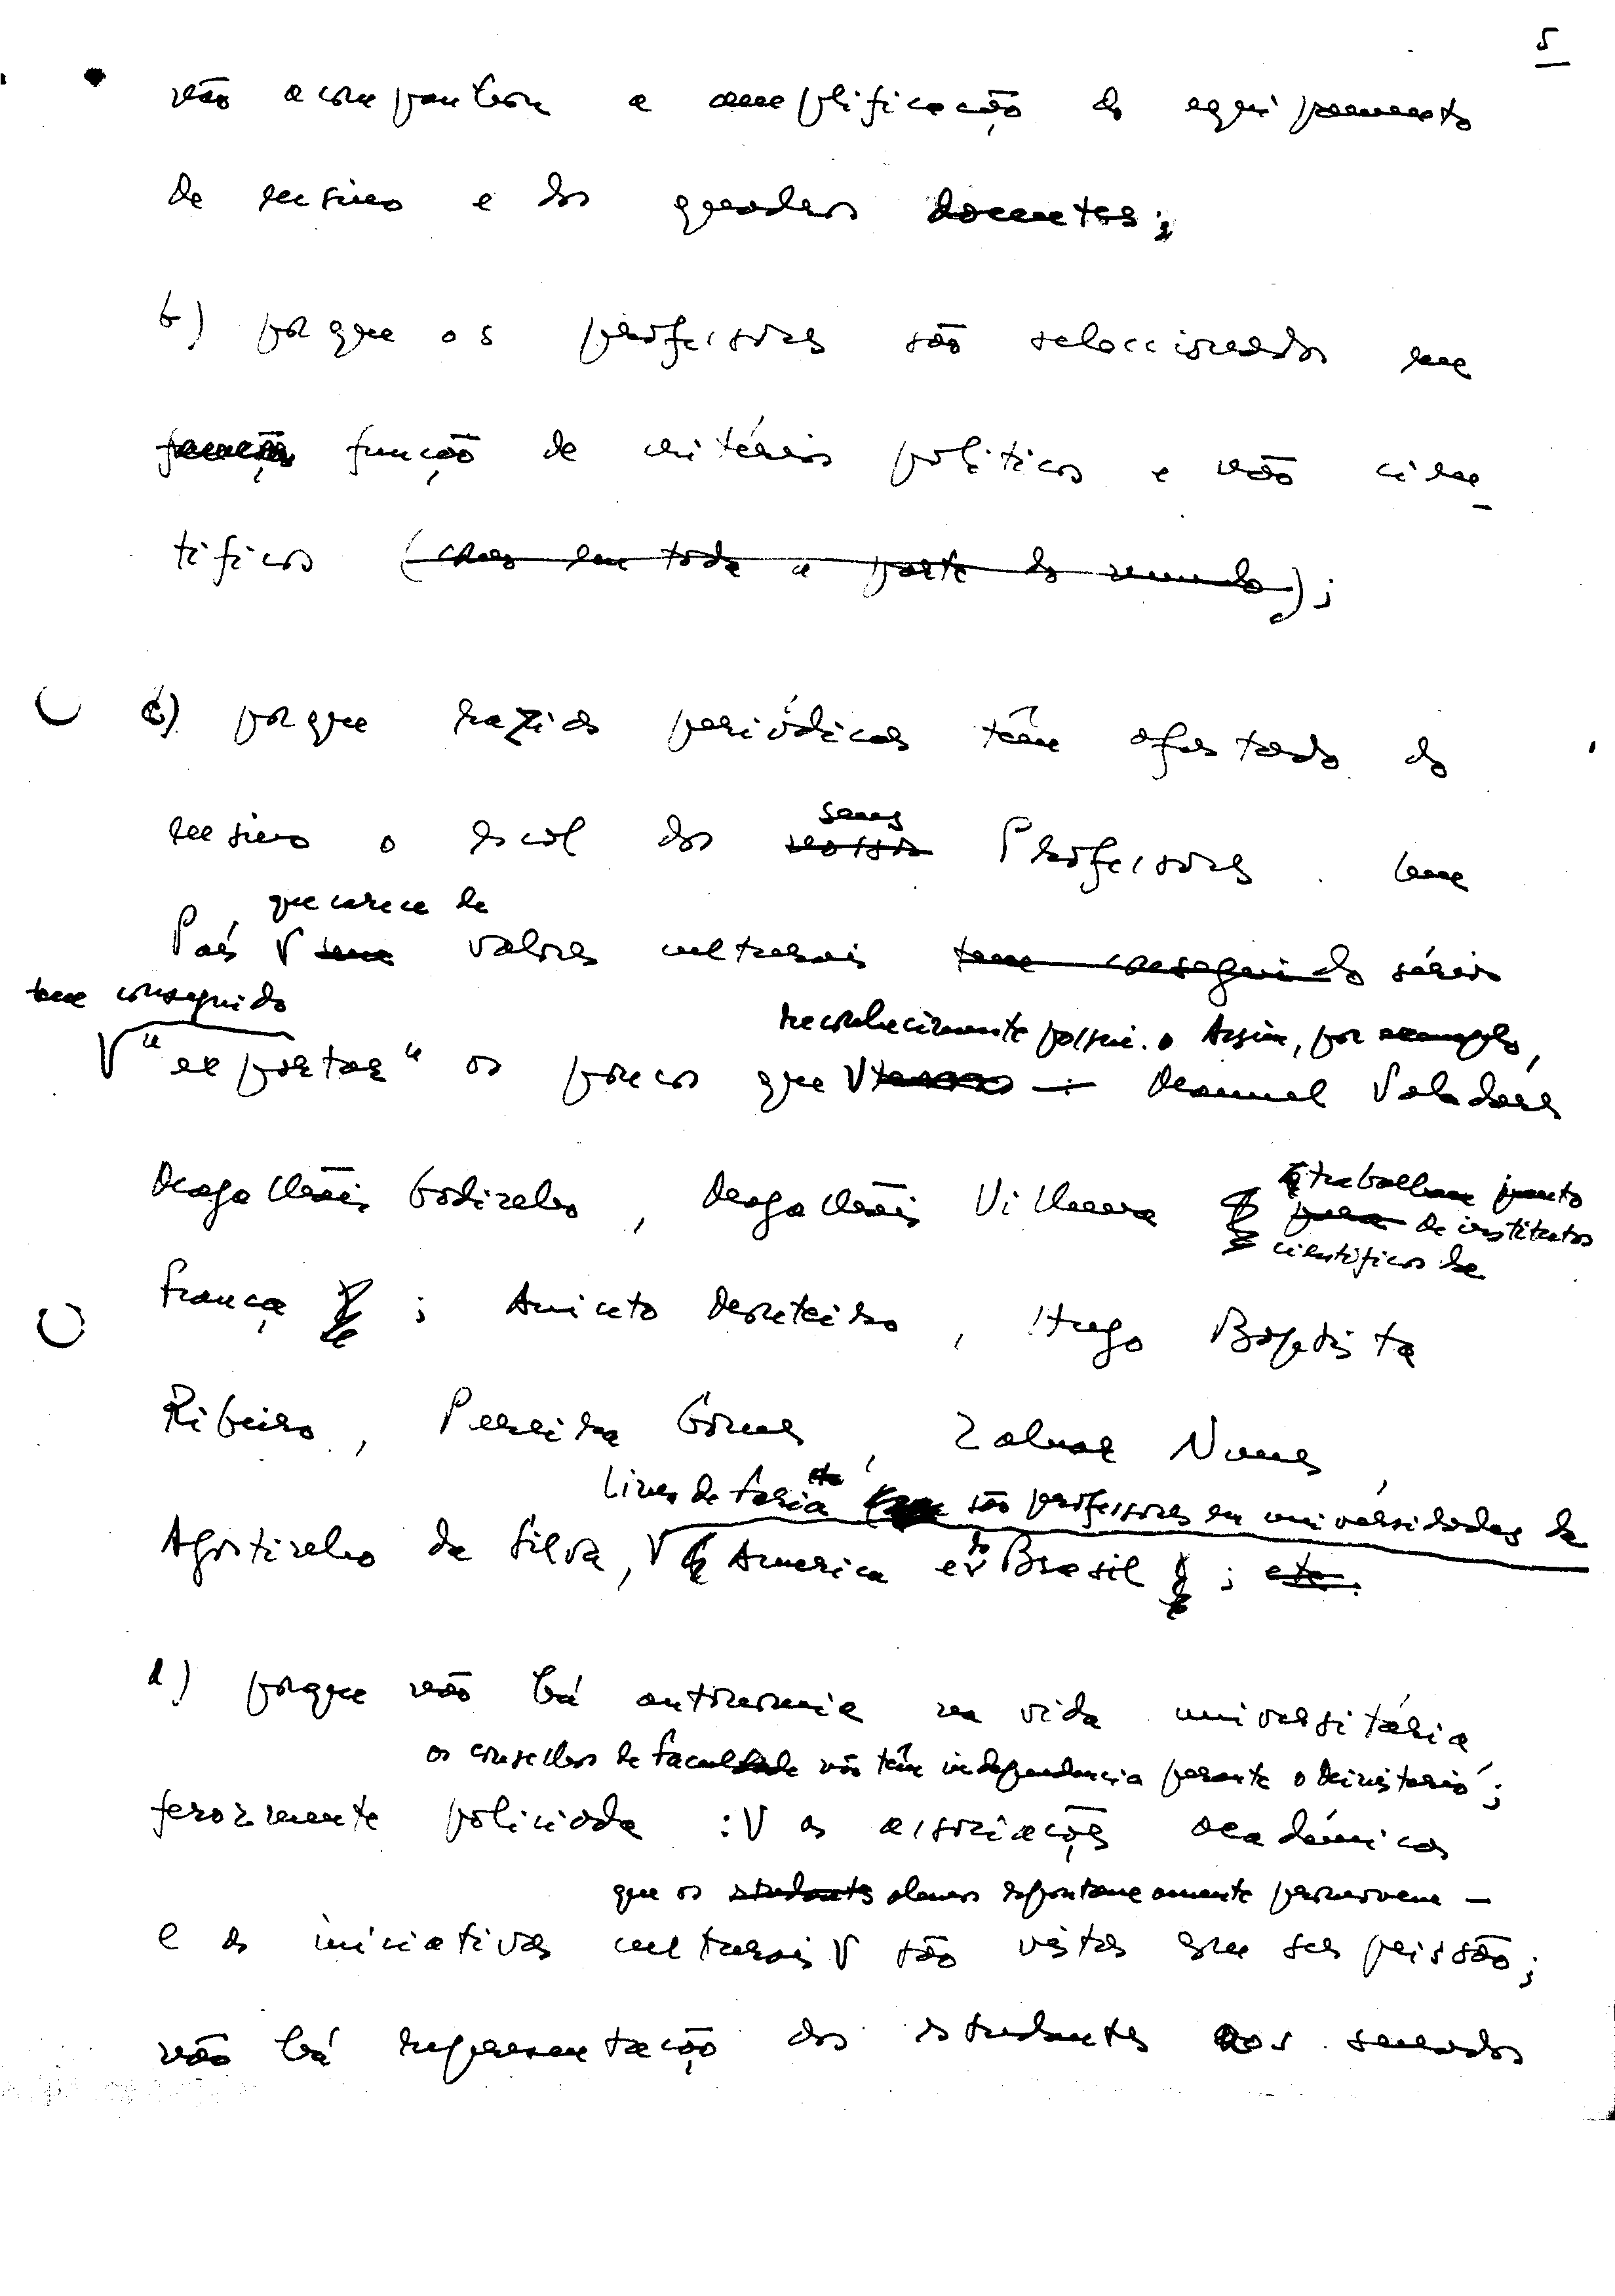 5
não acompanhou a amplificação do equipamento
de ensino e dos quadros docentes;
b) porque os professores são seleccionados em
função função de critérios políticos e não cien-
tíficos (como em toda a parte do mundo);
c) porque razias periódicas têm afastado do
seus
ensino o escol dos nossos Professores. Um
que carece de
País V sem valores culturais tem conseguido sérios
tem conseguido
reconhecidamente possui. Assim, por exemplo,
V "exportar" os poucos que V Manuel Valadares
trabalham junto
Magalhães Godinho, Magalhães Vilhena para de institutos
científicos de
França ; Aniceto Monteiro, Hugo Baptista
Ribeiro, Pereira Gomes, Zaluar Nunes,
Lima de Faria são professores em universidades da
Agostinho da Silva, V America e V Brasil ; etc.
do
d) porque não há autonomia na vida universitária
os conselhos de faculdade não têm independencia perante o Ministério;
ferozmente policiada :V as associações académicas
que os estudantes alunos espontaneamente promovem —
e as iniciativas culturais V são vistas com suspeissão;
não há representação dos estudantes nos senados